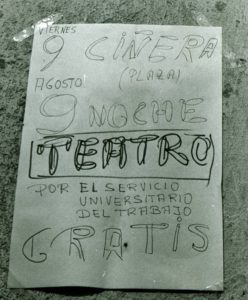 VIERNES
9 CIÑERA
AGOSTO (PLAZA)
9 NOCHE
TEATRO
POR EL SERVICIO
UNIVERSITARIO
DEL TRABAJO
GRATIS